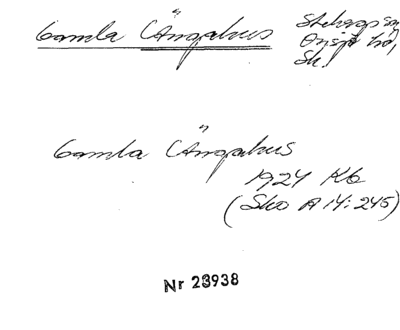 Gamla Ängahus
Stehags sn,
Onsjö hd,
Sk.
Gamla Ängahus
1924 Kb
(Sko A 14:245)
Nr 23938